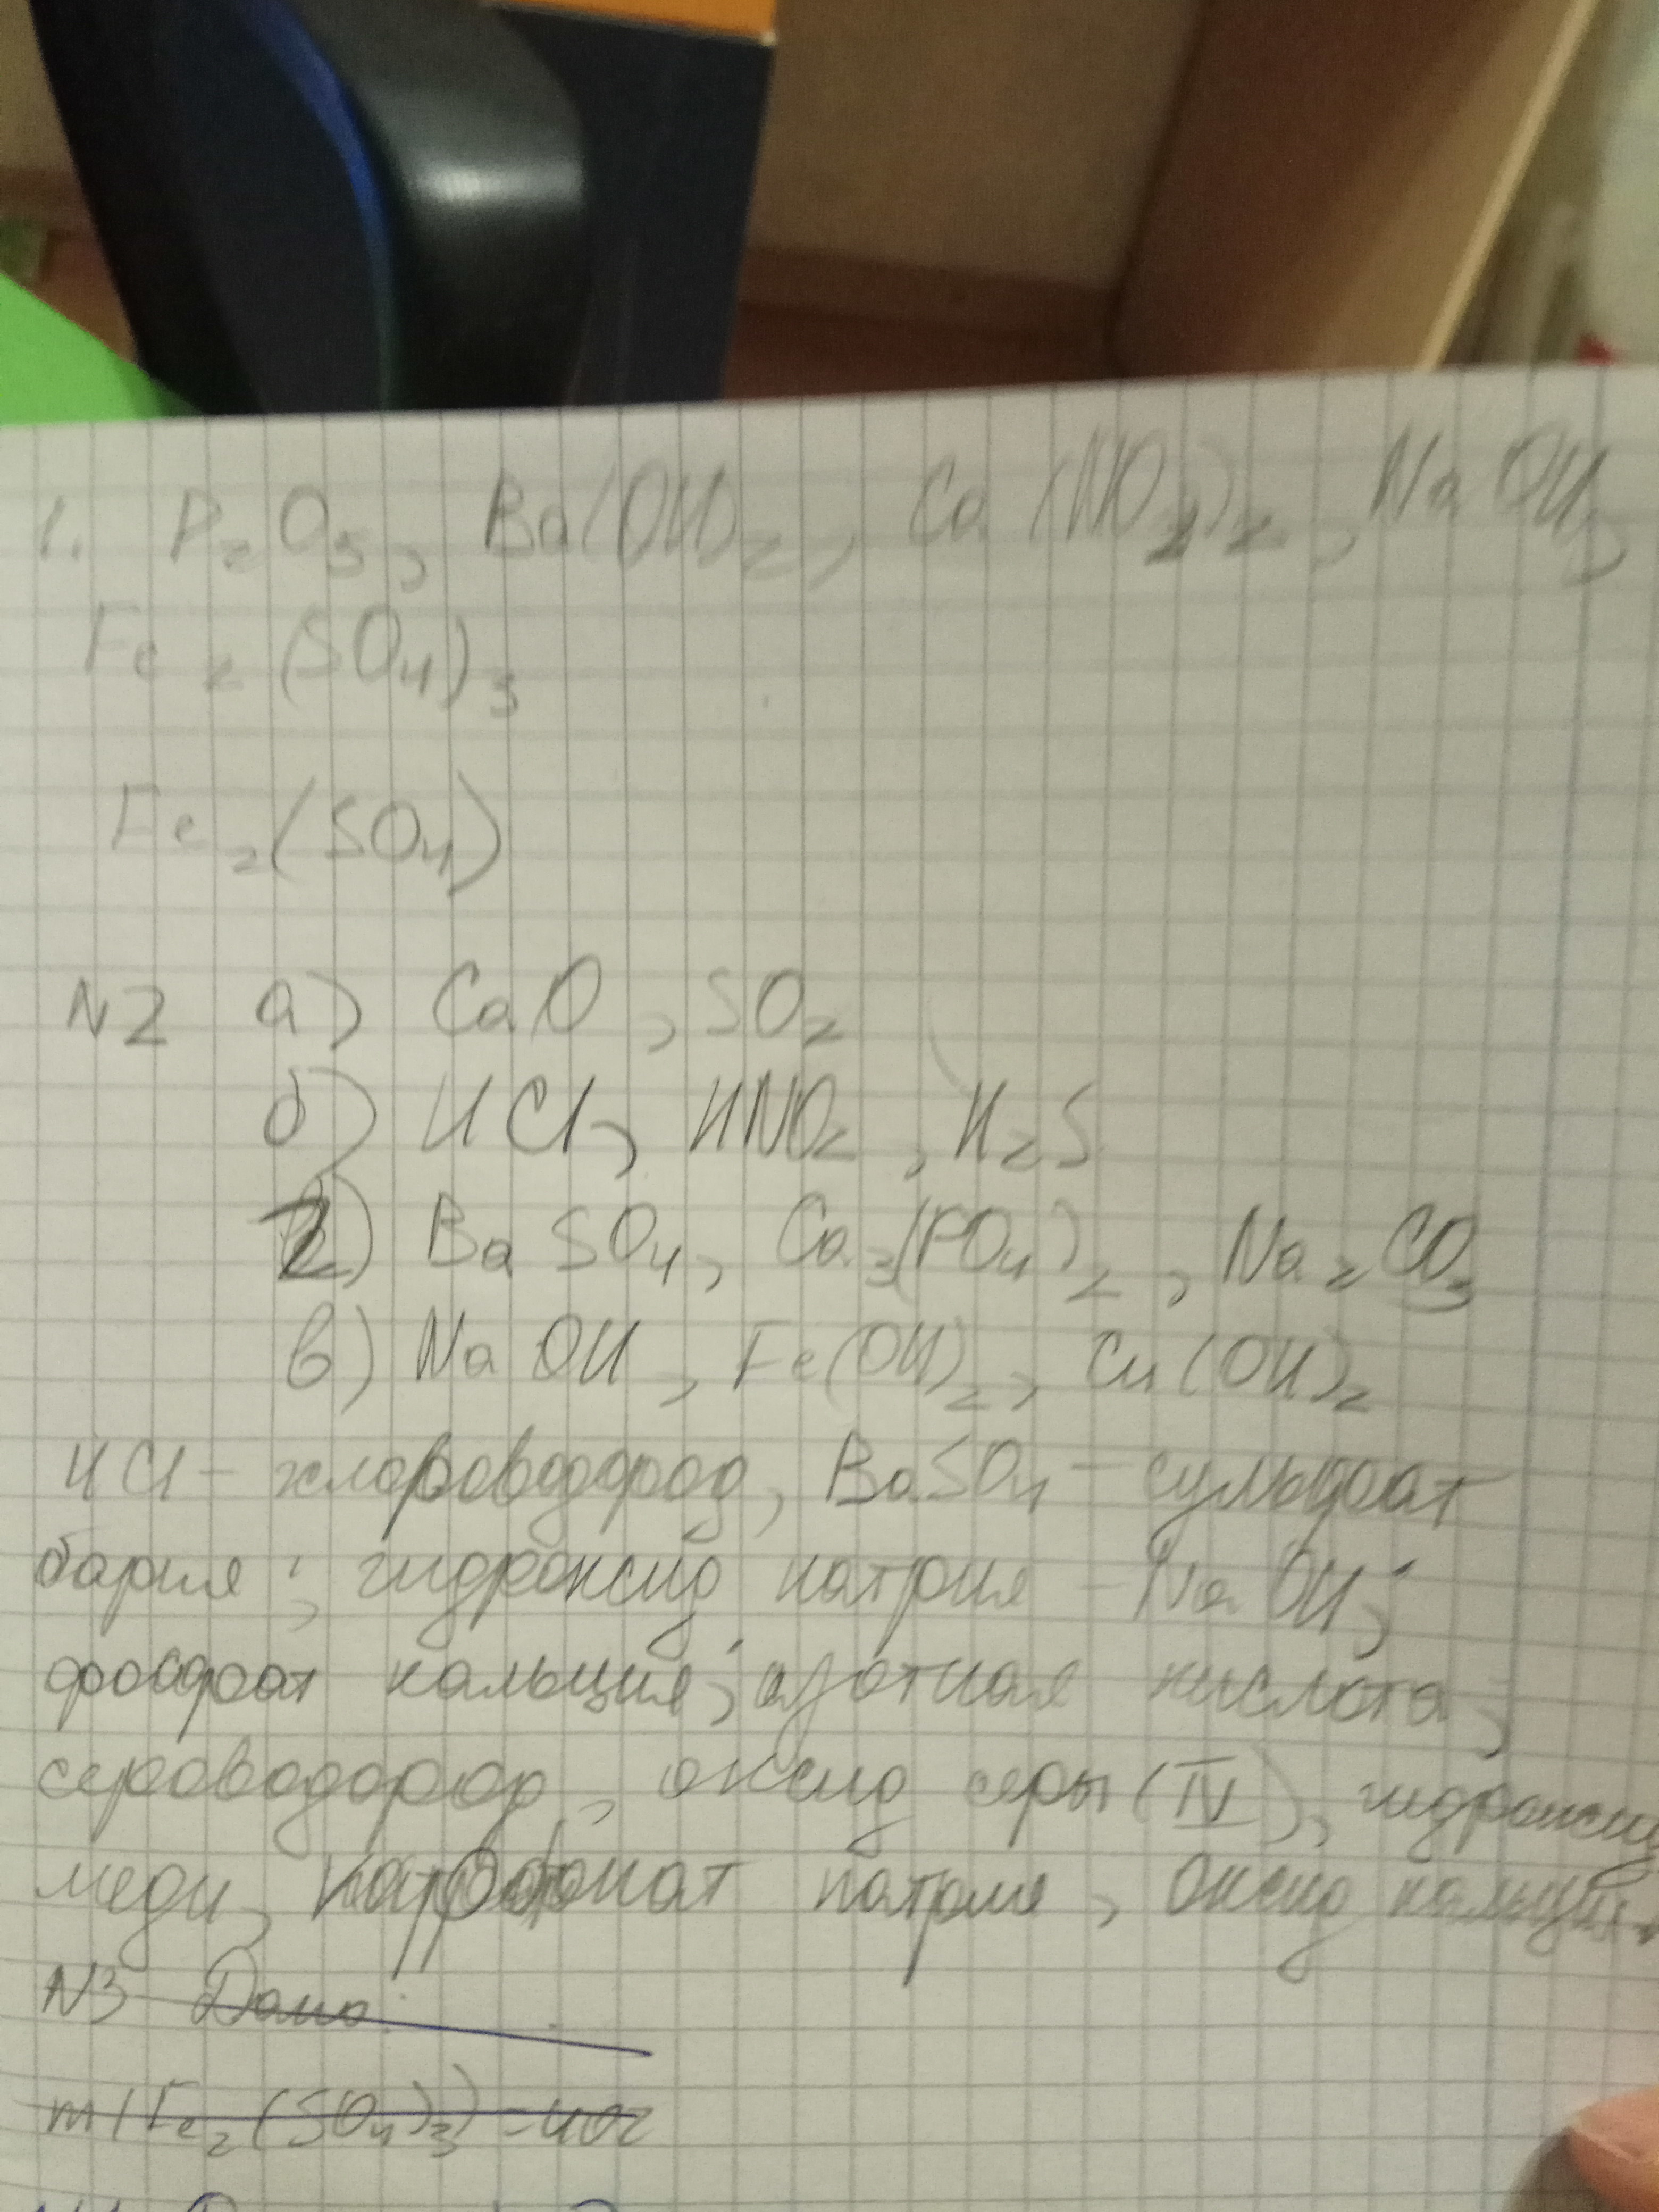 1. P₂O₅, Ba(OH)₂, Ca(NO₂)₂, NaOH,
Fe₂(SO₄)₃
Fe₂(SO₄)
N2 а) CaO, SO₂
б) HCl, HNO₂, H₂S
г) BaSO₄, Ca₃(PO₄)₂, Na₂CO₃
в) NaOH, Fe(OH)₂, Cu(OH)₂
HCl – хлороводород, BaSO₄ – сульфат
бария; гидроксид натрия – NaOH;
фосфат кальция; азотная кислота,
сероводород, оксид серы (IV), гидроксид
меди, натрия, оксид кальция.
N3 Дано:
m(Fe₂(SO₄)₃) = 40г